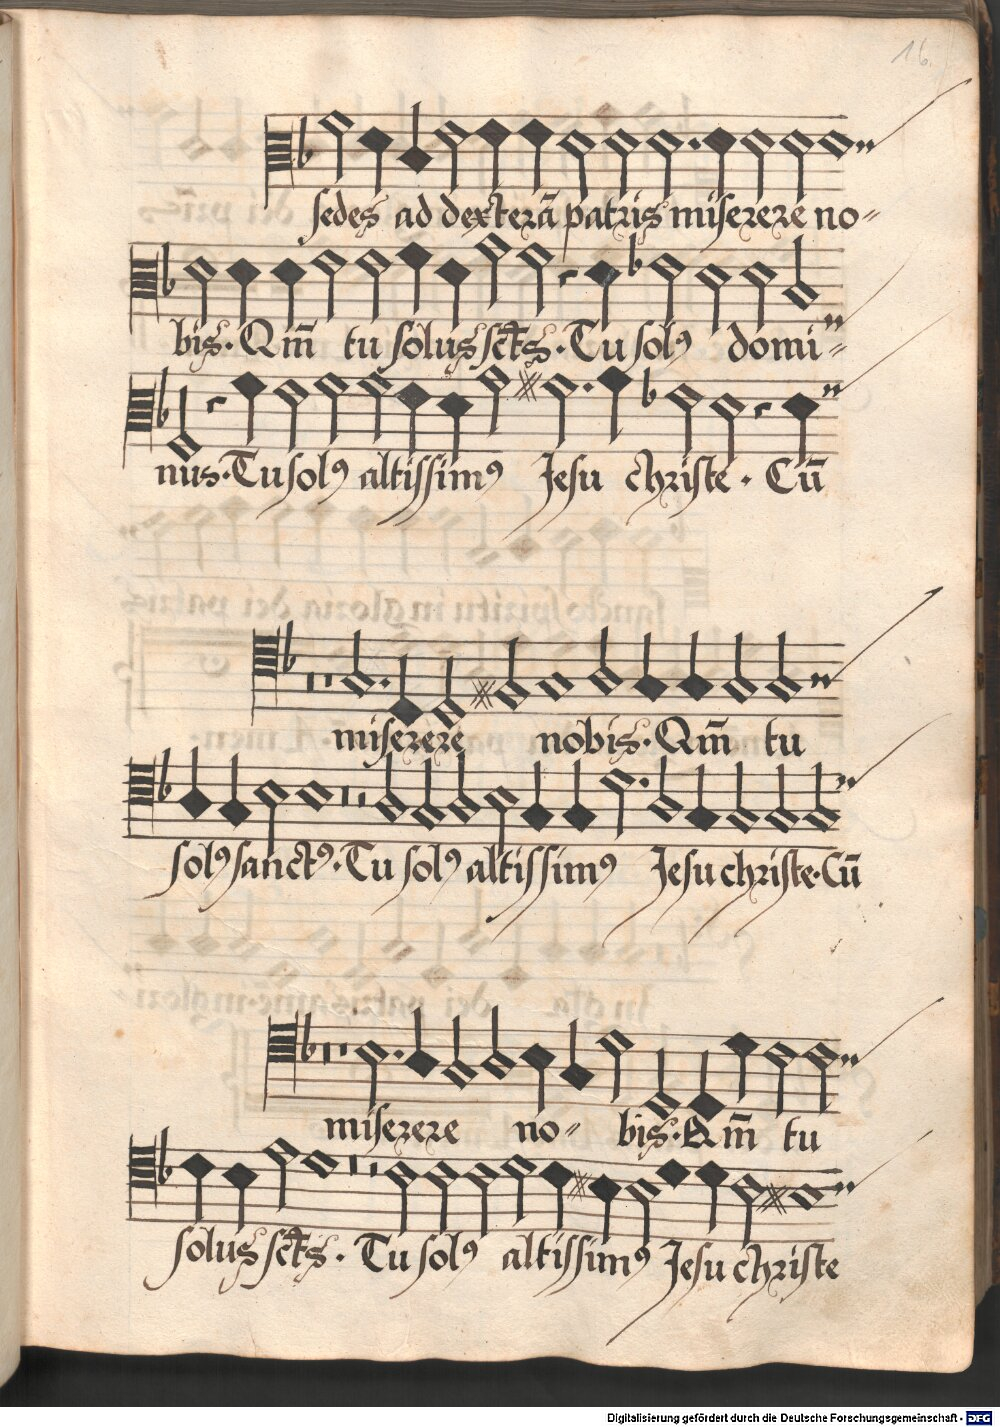 16.
sedes ad dexterã patris miserere no=
bis. Qm̃ tu solus sct̃s. Tu solꝰ domi=
nus. Tu solꝰ altissimꝰ Jesu christe. Cũ
miserere nobis. Qm̃ tu
solꝰ sanctꝰ. Tu solꝰ altissimꝰ Jesu christe. Cũ
miserere no= bis. Qm̃ tu
solus sct̃s. Tu solꝰ altissimꝰ Jesu christe
Digitalisierung gefördert durch die Deutsche Forschungsgemeinschaft - DFG